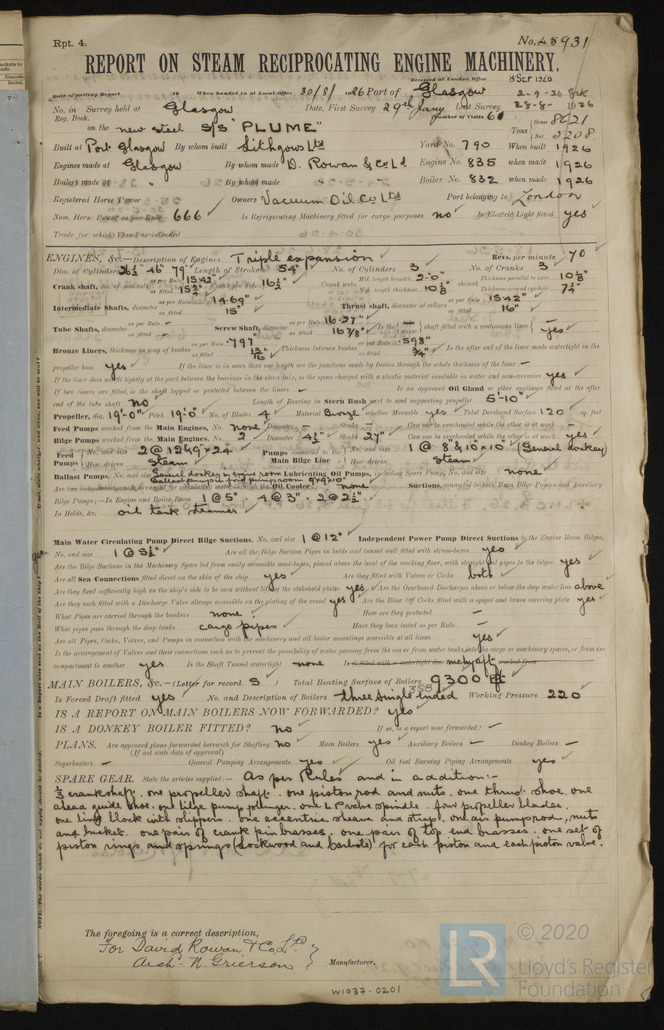 Rpt. 4.
No. 45931
REPORT ON STEAM RECIPROCATING ENGINE MACHINERY.
Received at London Office 8 SEP 1926
Date of writing Report 19 When handed in at Local Office 30/8/1926 Port of Glasgow 2-9-26
No. in Survey held at Glasgow Date, First Survey 29th Jany Last Survey 28-8-1926
Reg. Book. Number of Visits 61
on the new steel S/S "PLUME" Tons Gross 8621 Net 5208
Built at Port Glasgow By whom built Lithgows Ltd Yard No. 790 When built 1926
Engines made at Glasgow By whom made D. Rowan & Co Ld Engine No. 835 when made 1926
Boilers made at " By whom made " Boiler No. 832 when made 1926
Registered Horse Power Owners Vacuum Oil Co Ltd Port belonging to London
Nom. Horse Power as per Rule 666 Is Refrigerating Machinery fitted for cargo purposes no Is Electric Light fitted yes
Trade for which Vessel is intended
ENGINES, &c.—Description of Engines Triple expansion Revs. per minute 70
Dia. of Cylinders 26½" 46" 79" Length of Stroke 54" No. of Cylinders 3 No. of Cranks 3
Crank shaft, dia. of journals as per Rule 15.42" as fitted 15¾" Crank pin dia. 16¼" Crank webs Mid. length breadth 2'-0" Mid. length thickness 10⅛" shrunk Thickness parallel to axis 10⅛" Thickness around eye-hole 7¼"
Intermediate Shafts, diameter as per Rule 14.69" as fitted 15" Thrust shaft, diameter at collars as per Rule 15.42" as fitted 16"
Tube Shafts, diameter as per Rule — as fitted — Screw Shaft, diameter as per Rule 16.27" as fitted 16⅞" Is the shaft fitted with a continuous liner yes
Bronze Liners, thickness in way of bushes as per Rule .797 as fitted 13/16" Thickness between bushes as per Rule .598" as fitted ¾" Is the after end of the liner made watertight in the
propeller boss yes If the liner is in more than one length are the joints made by fusion through the whole thickness of the liner —
If the liner does not fit tightly at the part between the bearings in the stern tube, is the space charged with a plastic material insoluble in water and non-corrosive yes
If two liners are fitted, is the shaft lapped or protected between the liners — Is an approved Oil Gland or other appliance fitted at the after
end of the tube shaft no Length of Bearing in Stern Bush next to and supporting propeller 5'-10"
Propeller, dia. 19'-0" Pitch 19'-0" No. of Blades 4 Material Bronze whether Moveable yes Total Developed Surface 120 sq. feet
Feed Pumps worked from the Main Engines, No. none Diameter — Stroke — Can one be overhauled while the other is at work —
Bilge Pumps worked from the Main Engines, No. 2 Diameter 4½" Stroke 27" Can one be overhauled while the other is at work yes
Feed Pumps No. and size 2 @ 12 & 9 x 24" How driven Steam Pumps connected to the Main Bilge Line No. and size 1 @ 8 & 10 x 10" (General donkey) How driven Steam
Ballast Pumps, No. and size General donkey in engine room Ballast pump in ford pump room 9x9x10" Lubricating Oil Pumps, including Spare Pump, No. and size none
Are two independent means arranged for circulating water through the Oil Cooler none Suctions, connected to both Main Bilge Pumps and Auxiliary
Bilge Pumps;—In Engine and Boiler Room 1 @ 5" . 4 @ 3" . 2 @ 2½"
In Holds, &c. oil tank steamer
Main Water Circulating Pump Direct Bilge Suctions, No. and size 1 @ 12" Independent Power Pump Direct Suctions to the Engine Room Bilges,
No. and size 1 @ 5½" Are all the Bilge Suction Pipes in holds and tunnel well fitted with strum-boxes yes
Are the Bilge Suctions in the Machinery Space led from easily accessible mud-boxes, placed above the level of the working floor, with straight tail pipes to the bilges yes
Are all Sea Connections fitted direct on the skin of the ship yes Are they fitted with Valves or Cocks both
Are they fixed sufficiently high on the ship's side to be seen without lifting the stokehold plates yes Are the Overboard Discharges above or below the deep water line above
Are they each fitted with a Discharge Valve always accessible on the plating of the vessel yes Are the Blow Off Cocks fitted with a spigot and brass covering plate yes
What Pipes are carried through the bunkers none How are they protected —
What pipes pass through the deep tanks cargo pipes Have they been tested as per Rule —
Are all Pipes, Cocks, Valves, and Pumps in connection with the machinery and all boiler mountings accessible at all times yes
Is the arrangement of Valves and their connections such as to prevent the possibility of water passing from the sea or from water tanks into the cargo or machinery spaces, or from one
compartment to another yes Is the Shaft Tunnel watertight none Is it fitted with a watertight door mchy aft worked from
MAIN BOILERS, &c.—(Letter for record S) Total Heating Surface of Boilers 9300 ft
Is Forced Draft fitted yes No. and Description of Boilers three single ended Working Pressure 220
IS A REPORT ON MAIN BOILERS NOW FORWARDED? yes
IS A DONKEY BOILER FITTED? no If so, is a report now forwarded? —
PLANS. Are approved plans forwarded herewith for Shafting no Main Boilers yes Auxiliary Boilers — Donkey Boilers —
(If not state date of approval)
Superheaters — General Pumping Arrangements yes Oil fuel Burning Piping Arrangements yes
SPARE GEAR. State the articles supplied:— As per Rules and in addition:-
⅓ crankshaft. one propeller shaft. one piston rod and nuts. one thrust shoe. one
ahead guide shoe. one bilge pump plunger. one L P valve spindle. four propeller blades.
one link block with slippers. one eccentric sheave and strap. one air pump rod, nuts
and bucket. one pair of crank pin brasses. one pair of top end brasses. one set of
piston rings and springs (Lockwood and Carlisle) for each piston and each piston valve.
The foregoing is a correct description,
For David Rowan & Co. Ltd
Archd N. Grierson Manufacturer.
W1037-0201
LR © 2020
Lloyd's Register
Foundation